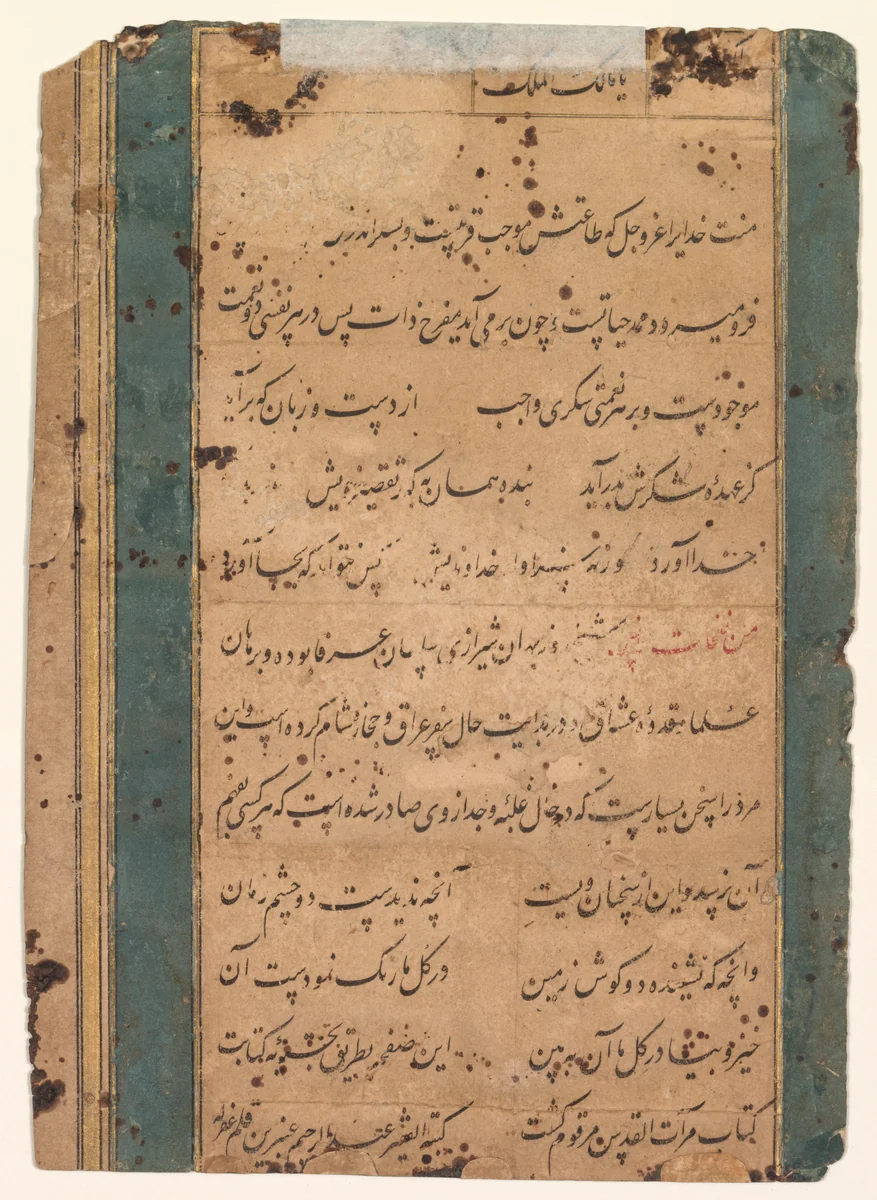 یا مالک الملک
منت خدایرا عز و جل که طاعتش موجب قربتست و بشکر اندرش
فرو میرود ممد حیاتست و چون بر می آید مفرح ذات پس در هر نفسی دو نعمت
موجودست و بر هر نعمتی شکری واجب از دست و زبان که برآید
کز عهدهٔ شکرش بدر آید بنده همان به که ز تقصیر خویش
خدا آورد ورنه سزاوار خداوندیش کس نتواند که بجا آورد
من نفحات شیخ روزبهان شیرازی سلطان عرفا بوده و برهان
علما و قدوهٔ عشاق در بدایت حال سفر عراق و حجاز و شام کرده است و این
مرد را سخن بسیارست که در حال غلبه و وجد از وی صادر شده است که هر کسی بفهم
آن نرسید و این از سخنان ویست آنچه ندیدست دو چشم زمان
وانچه که نشنیده دو گوش زمین در گل ما رنگ نمودست آن
خیز و بیا در گل ما آن ببین این صفحه بطریق کتابت
کتاب مرآت القدس مرقوم گشت کتبه الفقیر عنبرین قلم غفر له